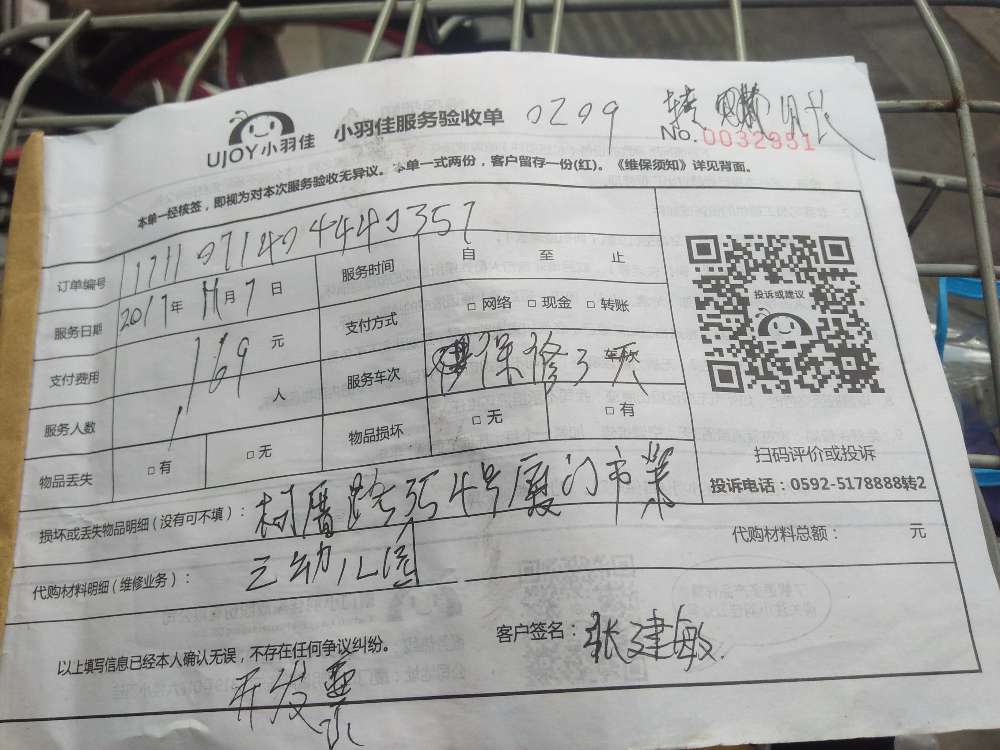 UJOY小羽佳 小羽佳服务验收单 0299
NO. 0032951
本单一经核签，即视为对本次服务验收无异议。本单一式两份，客户留存一份(红)。《维保须知》详见背面。
订单编号
服务日期 2017年 11月7日 服务时间 自 至 止
支付费用 169 元 支付方式 □网络 □现金 □转账
服务人数 1 人 服务车次 保修3天 车次
物品丢失 □有 □无 物品损坏 □无 □有
投诉或建议
扫码评价或投诉
投诉电话：0592-5178888转2
损坏或丢失物品明细（没有可不填）： 号厦门市第
代购材料总额： 元
代购材料明细（维修业务）： 三幼儿园
以上填写信息已经本人确认无误，不存在任何争议纠纷。
客户签名：张建敏
开发票